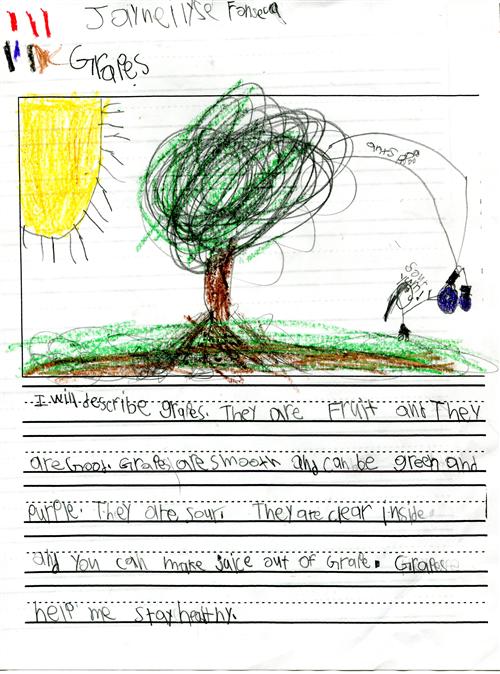 Jaynellyse Fonseca
Grapes
ants
Sour
I will describe grapes. They are Fruit and They
are Good. Grapes are smooth and can be green and
purple. They are sour. They are clear inside.
and you can make juice out of Grape. Grapes
help me stay healthy.